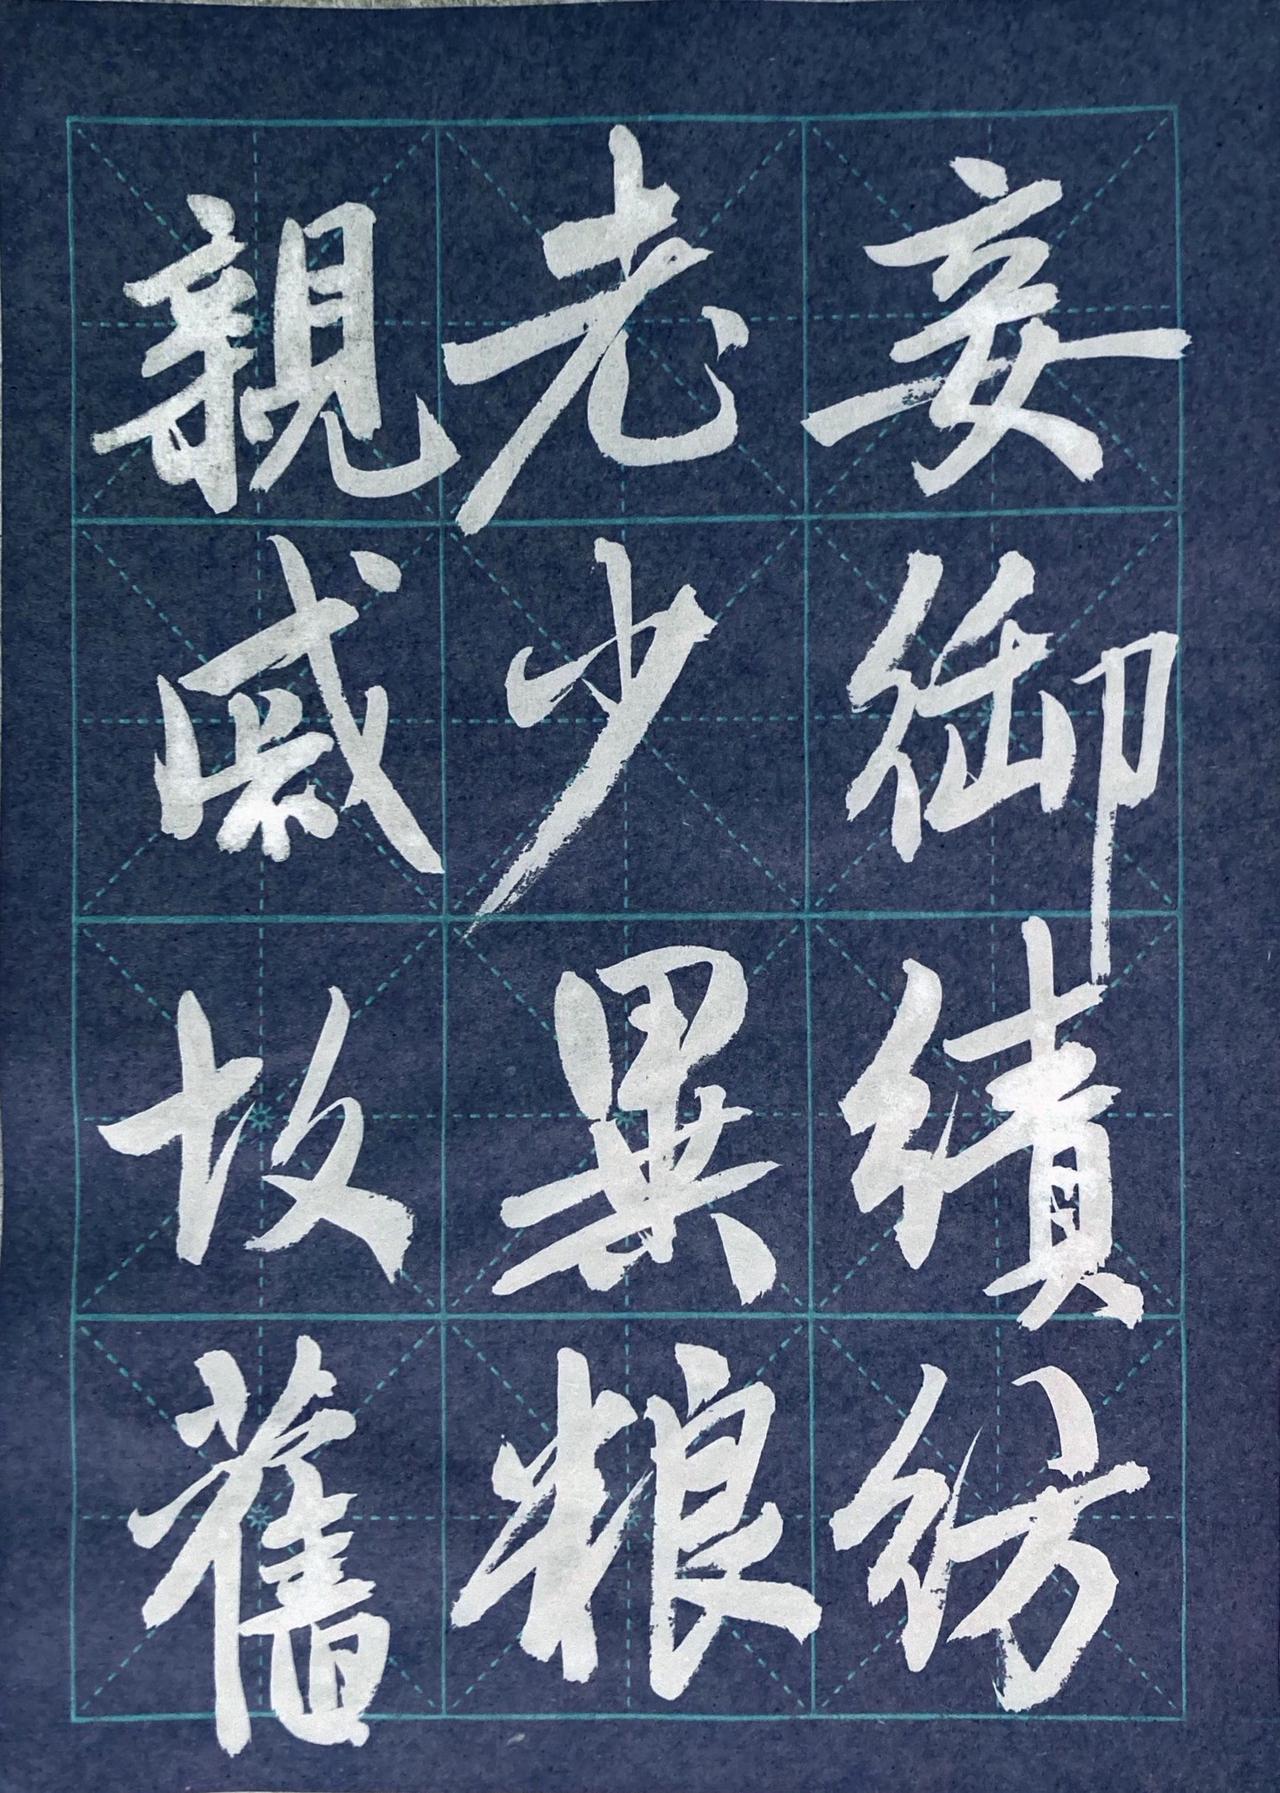 親戚故舊
老少異粮
妾御績紡